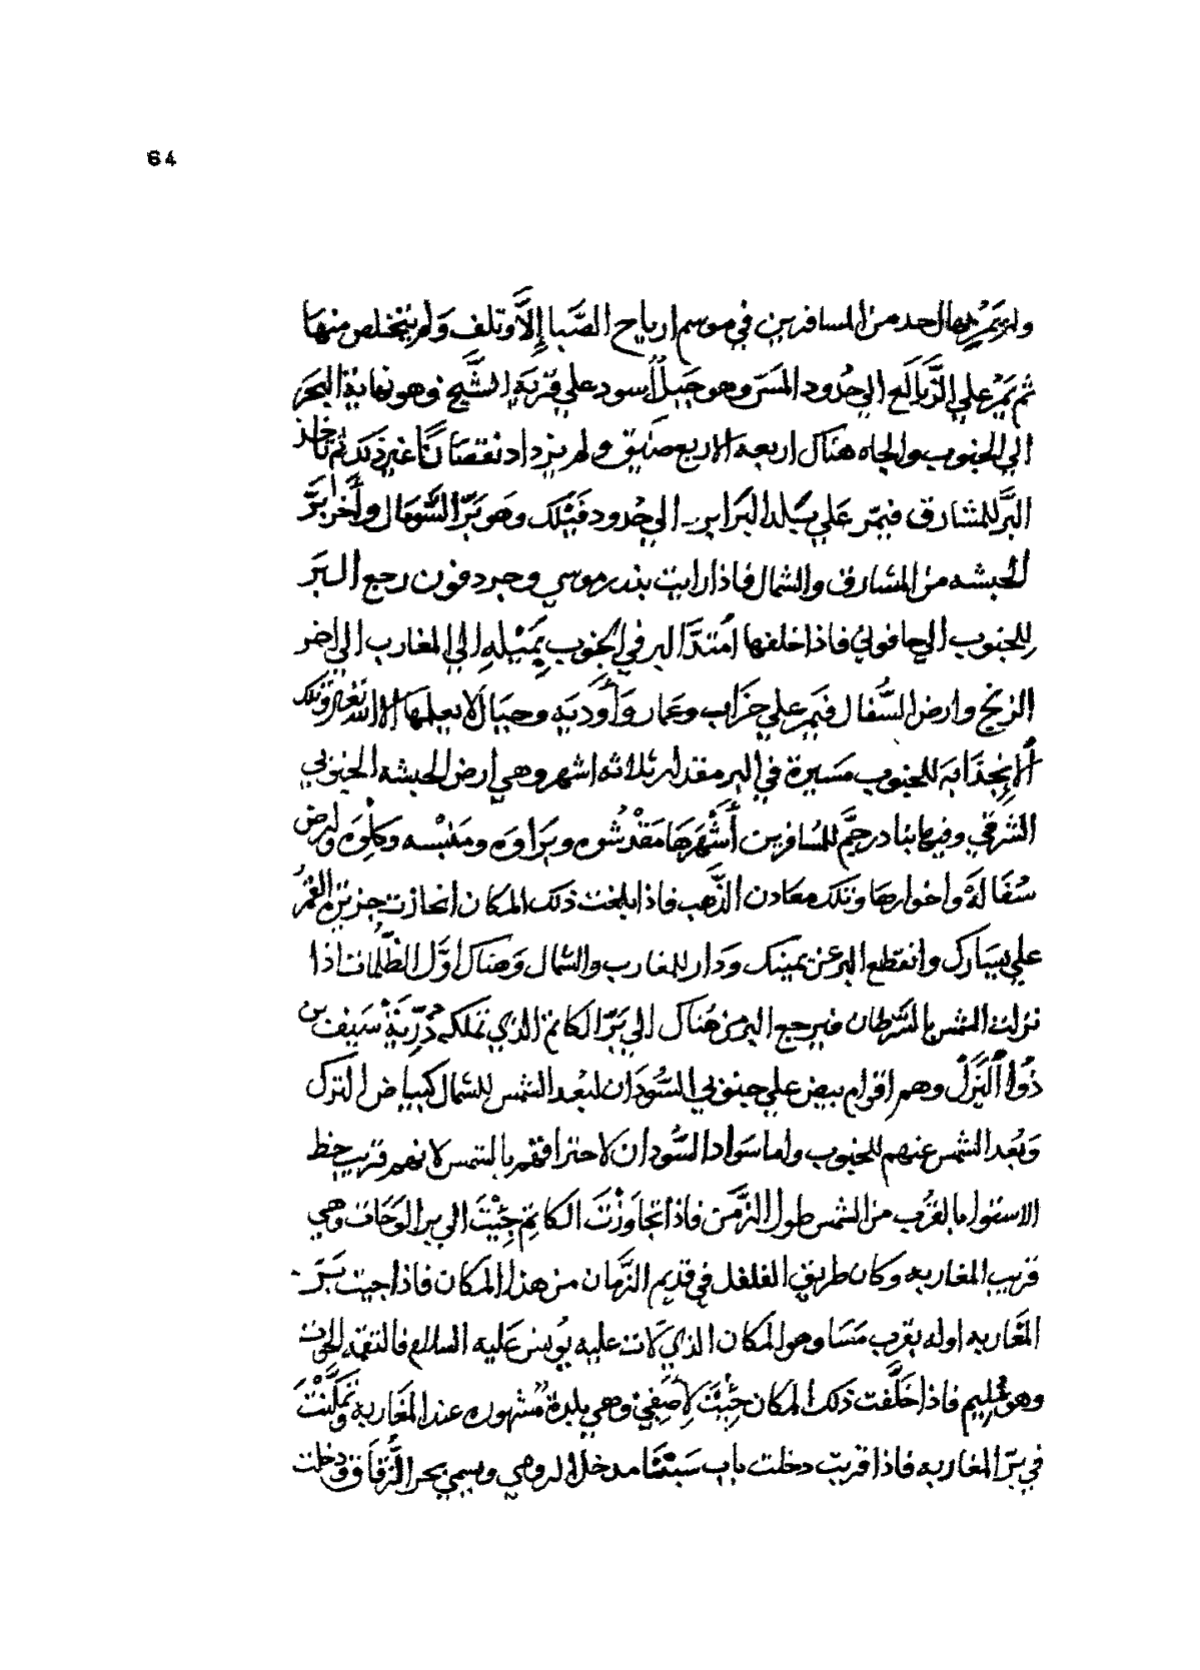 64
ولم يمر بها احد من المسافرين في موسم ارياح الصَّبا إِلَّا وتلف وَلم يتخلص منها
ثم يَمُرّ علي الزَّيَالَع الي حُدود المَسَرّ وهو جَبل أسود علي قَرْيَة الشَّيخ وهو نهاية البحر
الي الجنوب والجاه هناك اربعة الا ربع ضَيّق ولم يزداد نقصانًا غير ذَلك ثم تاخذ
البَّر للمشارق فيمر عَلي بَلد البَرابر الي حُدود فَيْلَك وهو بَرّ السُّومَال وأخر بَرّ
الحَبشه من المشارق والشمال فاذا رايت بندر موسي وجردفون رجع البَر
للجنوب الي حافوني فاذا خلفها امْتدَّ البر في الجَنوب بِمَيْلِهِ الي المغارب الي اخر
الزنج وارض السُّفال فيَمر علي خَرَاب وعَمار وَأَوديَة وجبَال لا يعلمها الا الله تعالي وتلك
الإنْجِذَابَة للجنوب مَسيرة في البر مقدار ثلاثه اشهر وهي ارض الحبشه الجنوبي
الشرقي وفيها بنادر جمَّ للمُسافرين أَشْهَرَهَا مَقْدشُوه وبَرَاوَه ومَنْبَسه وكِلْوَه وارض
سُفَالَة واخوارها وتلك معَادن الذَّهب فاذا بلغت ذلك المكان انحازت جزيرة القُمُر
علي يسَارك وانقطع البر عَن يمينك ودار للمغارب والشمال وَهناك اوَّل الظُّلمات اذا
نزلت الشمس بالسَّرَطان فيرجع البر من هُناك الي بَرّ الكانم الذي تملكه ذُرِّيَة سَيف بن
ذُوا الْيَزَلُ وهم اقوام بيض علي جنوبي السُّودَان لبُعد الشمس للشمال كبيَاض الترك
وَبُعد الشمس عنهم للجنوب واما سَواد السُّودان لاحتراقهم بالشمس لانهم قريب خط
الاستوا بالقُرب من الشمس طول الزَّمن فاذا تجَاوَزْتَ الكانِم جِيْتَ الي بر الوَحَات وهي
قريب المغاربه وكان طريق الفلفل في قديم الزَّمان من هذا المكان فاذا جيت بَرّ
المغاربه اوله بقرب مَسَا وهو المكان الذي كانت عليه يُونس عَليه السلام فالتقمه الحوت
وهو مُليم فاذا خَلَّفت ذلك المكان جِيْتَ لِاصَفِيْ وهي بلدةٌ مشهوره عند المغَاربه وتمكَّنْتَ
في بَرّ المغاربه فاذا قربت دخلت باب سَبْتَا مدخل الرومي ويسمي بحر الزُّقَاق ودخلت